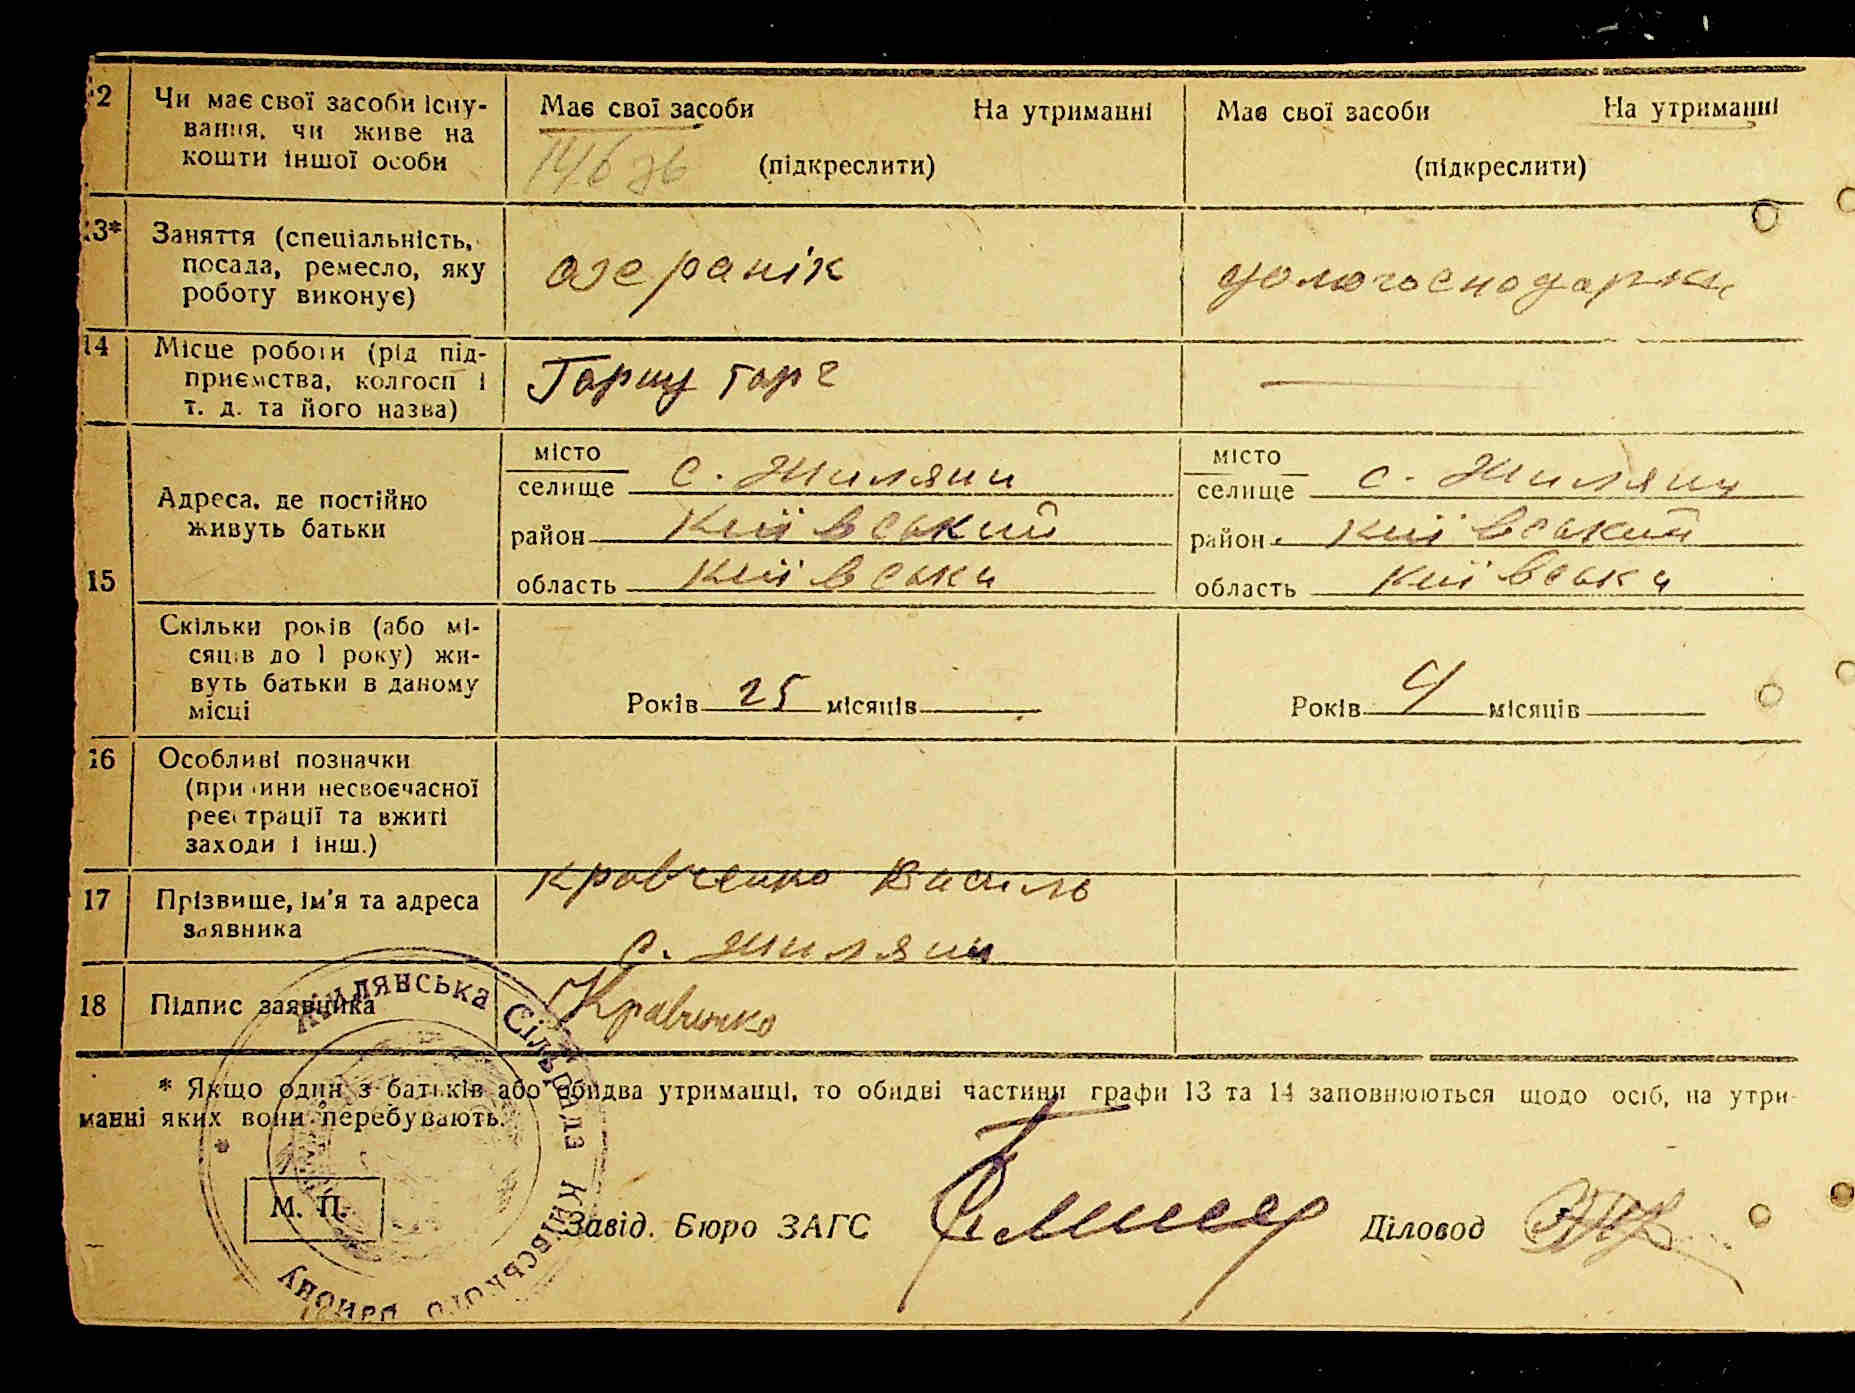 12
Чи має свої засоби існу-
вання, чи живе на
кошти іншої особи
Має свої засоби На утриманні
(підкреслити)
Має свої засоби На утриманні
(підкреслити)
13*
Заняття (спеціальність,
посада, ремесло, яку
роботу виконує)
домогосподарка
14
Місце роботи (рід під-
приємства, колгосп і
т. д. та його назва)
15
Адреса, де постійно
живуть батьки
місто
селище с. Жиляни
район Київський
область Київська
місто
селище с. Жиляни
район Київський
область Київська
Скільки років (або мі-
сяців до 1 року) жи-
вуть батьки в даному
місці
Років 25 місяців
Років 4 місяців
16
Особливі позначки
(причини несвоєчасної
реєстрації та вжиті
заходи і інш.)
17
Прізвище, ім'я та адреса
заявника
Кравченко Василь
с. Жиляни
18
Підпис заявника
Кравченко
* Якщо один з батьків або обидва утриманці, то обидві частини графи 13 та 14 заповнюються щодо осіб, на утри-
манні яких вони перебувають.
М. П.
Завід. Бюро ЗАГС
Діловод
Жилянська Сільрада Київського району